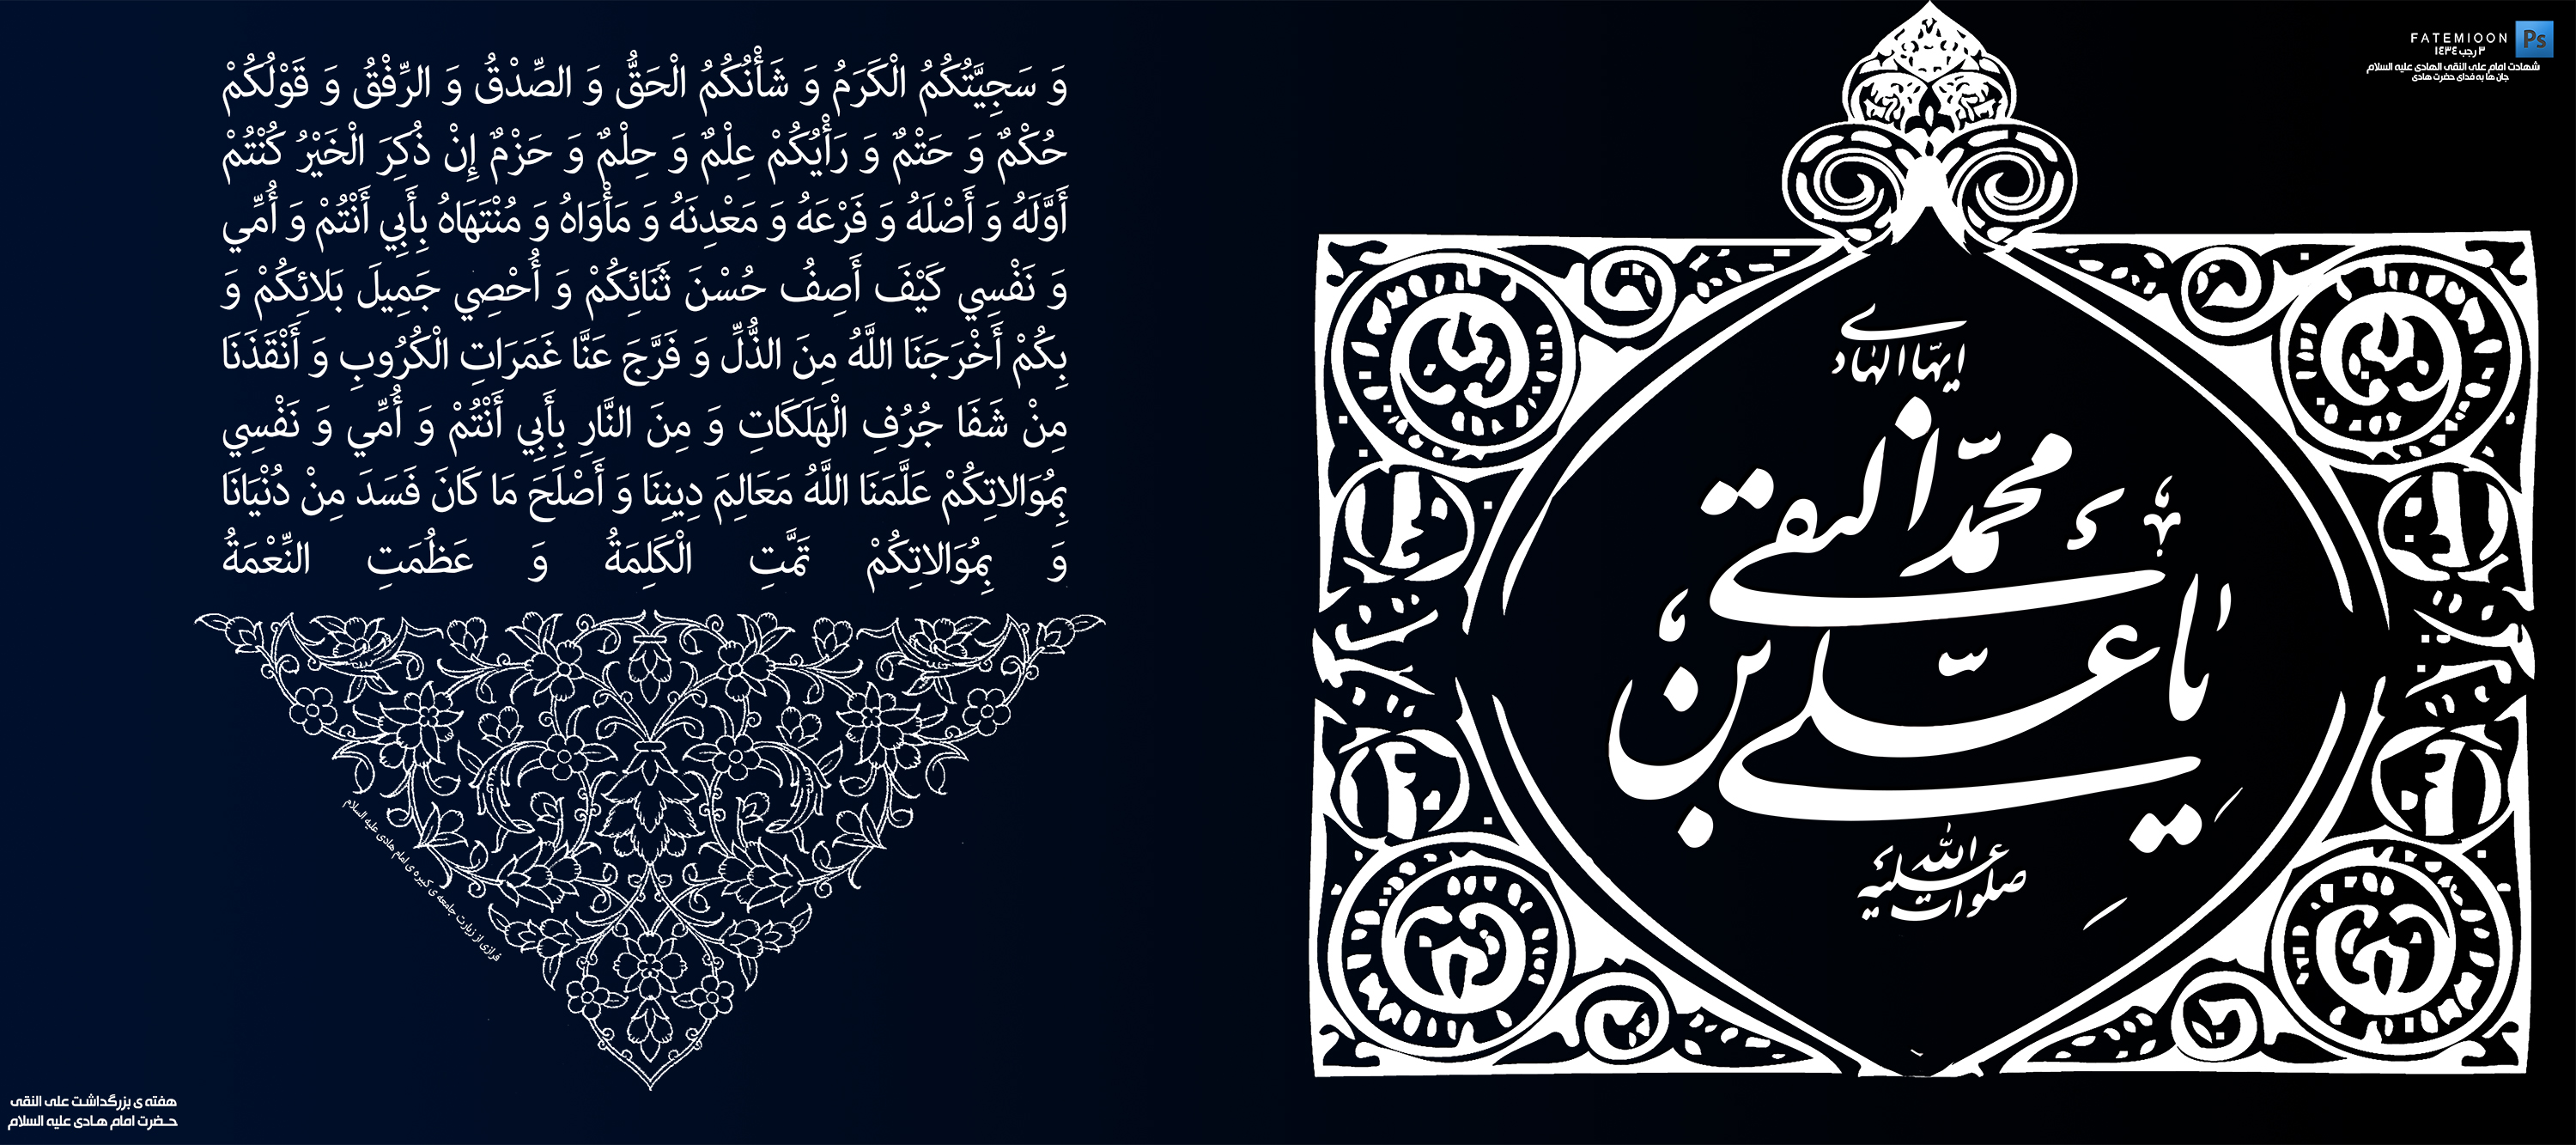 FATEMIOON
۳ رجب ۱٤۳٤
شهادت امام علی النقی الهادی علیه السلام
جان ها به فدای حضرت هادی
ایها الهادی
یا علی بن محمد النقی
صلوات الله علیه
وَ سَجِيَّتُكُمُ الْكَرَمُ وَ شَأْنُكُمُ الْحَقُّ وَ الصِّدْقُ وَ الرِّفْقُ وَ قَوْلُكُمْ
حُكْمٌ وَ حَتْمٌ وَ رَأْيُكُمْ عِلْمٌ وَ حِلْمٌ وَ حَزْمٌ إِنْ ذُكِرَ الْخَيْرُ كُنْتُمْ
أَوَّلَهُ وَ أَصْلَهُ وَ فَرْعَهُ وَ مَعْدِنَهُ وَ مَأْوَاهُ وَ مُنْتَهَاهُ بِأَبِي أَنْتُمْ وَ أُمِّي
وَ نَفْسِي كَيْفَ أَصِفُ حُسْنَ ثَنَائِكُمْ وَ أُحْصِي جَمِيلَ بَلائِكُمْ وَ
بِكُمْ أَخْرَجَنَا اللَّهُ مِنَ الذُّلِّ وَ فَرَّجَ عَنَّا غَمَرَاتِ الْكُرُوبِ وَ أَنْقَذَنَا
مِنْ شَفَا جُرُفِ الْهَلَكَاتِ وَ مِنَ النَّارِ بِأَبِي أَنْتُمْ وَ أُمِّي وَ نَفْسِي
بِمُوَالاتِكُمْ عَلَّمَنَا اللَّهُ مَعَالِمَ دِينِنَا وَ أَصْلَحَ مَا كَانَ فَسَدَ مِنْ دُنْيَانَا
وَ بِمُوَالاتِكُمْ تَمَّتِ الْكَلِمَةُ وَ عَظُمَتِ النِّعْمَةُ
فرازی از زیارت جامعه ی کبیره ی امام هادی علیه السلام
هفته ی بزرگداشت علی النقی
حضرت امام هادی علیه السلام
Ps